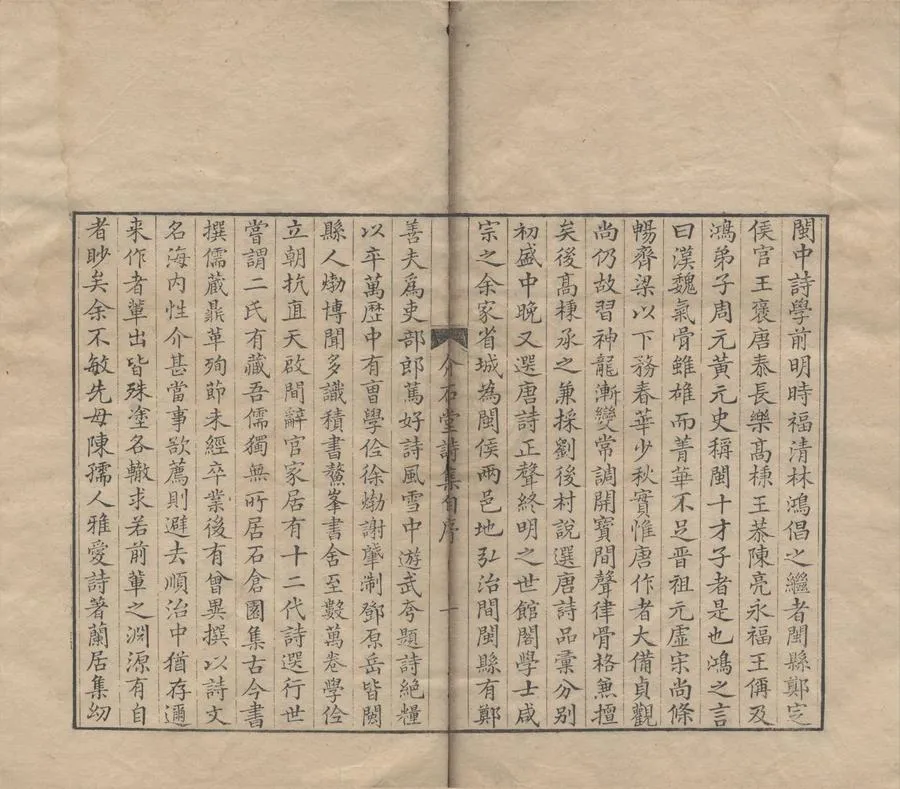 閩中詩學前明時福清林鴻倡之繼者閩縣鄭定
侯官王襃唐泰長樂高棅王恭陳亮永福王偁及
鴻弟子周元黃元史稱閩十才子者是也鴻之言
曰漢魏氣骨雖雄而菁華不足晉祖元虛宋尚條
暢齊梁以下務春華少秋實惟唐作者大備貞觀
尚仍故習神龍漸變常調開寶間聲律骨格兼擅
矣後高棅承之兼採劉後村說選唐詩品彙分別
初盛中晚又選唐詩正聲終明之世館閣學士咸
宗之余家省城為閩侯兩邑地弘治間閩縣有鄭
介石堂詩集自序 一
善夫爲吏部郎篤好詩風雪中遊武夸題詩絶糧
以卒萬歷中有曺學佺徐𤊹謝肇淛鄧原岳皆閩
縣人𤊹博聞多識積書鰲峯書舍至數萬卷學佺
立朝抗直天啟間辭官家居有十二代詩選行世
嘗謂二氏有藏吾儒獨無所居石倉園集古今書
撰儒藏鼎革殉節未經卒業後有曾異撰以詩文
名海内性介甚當事欲薦則避去順治中猶存邇
来作者輩出皆殊塗各轍求若前輩之淵源有自
者眇矣余不敏先母陳孺人雅愛詩著蘭居集幼